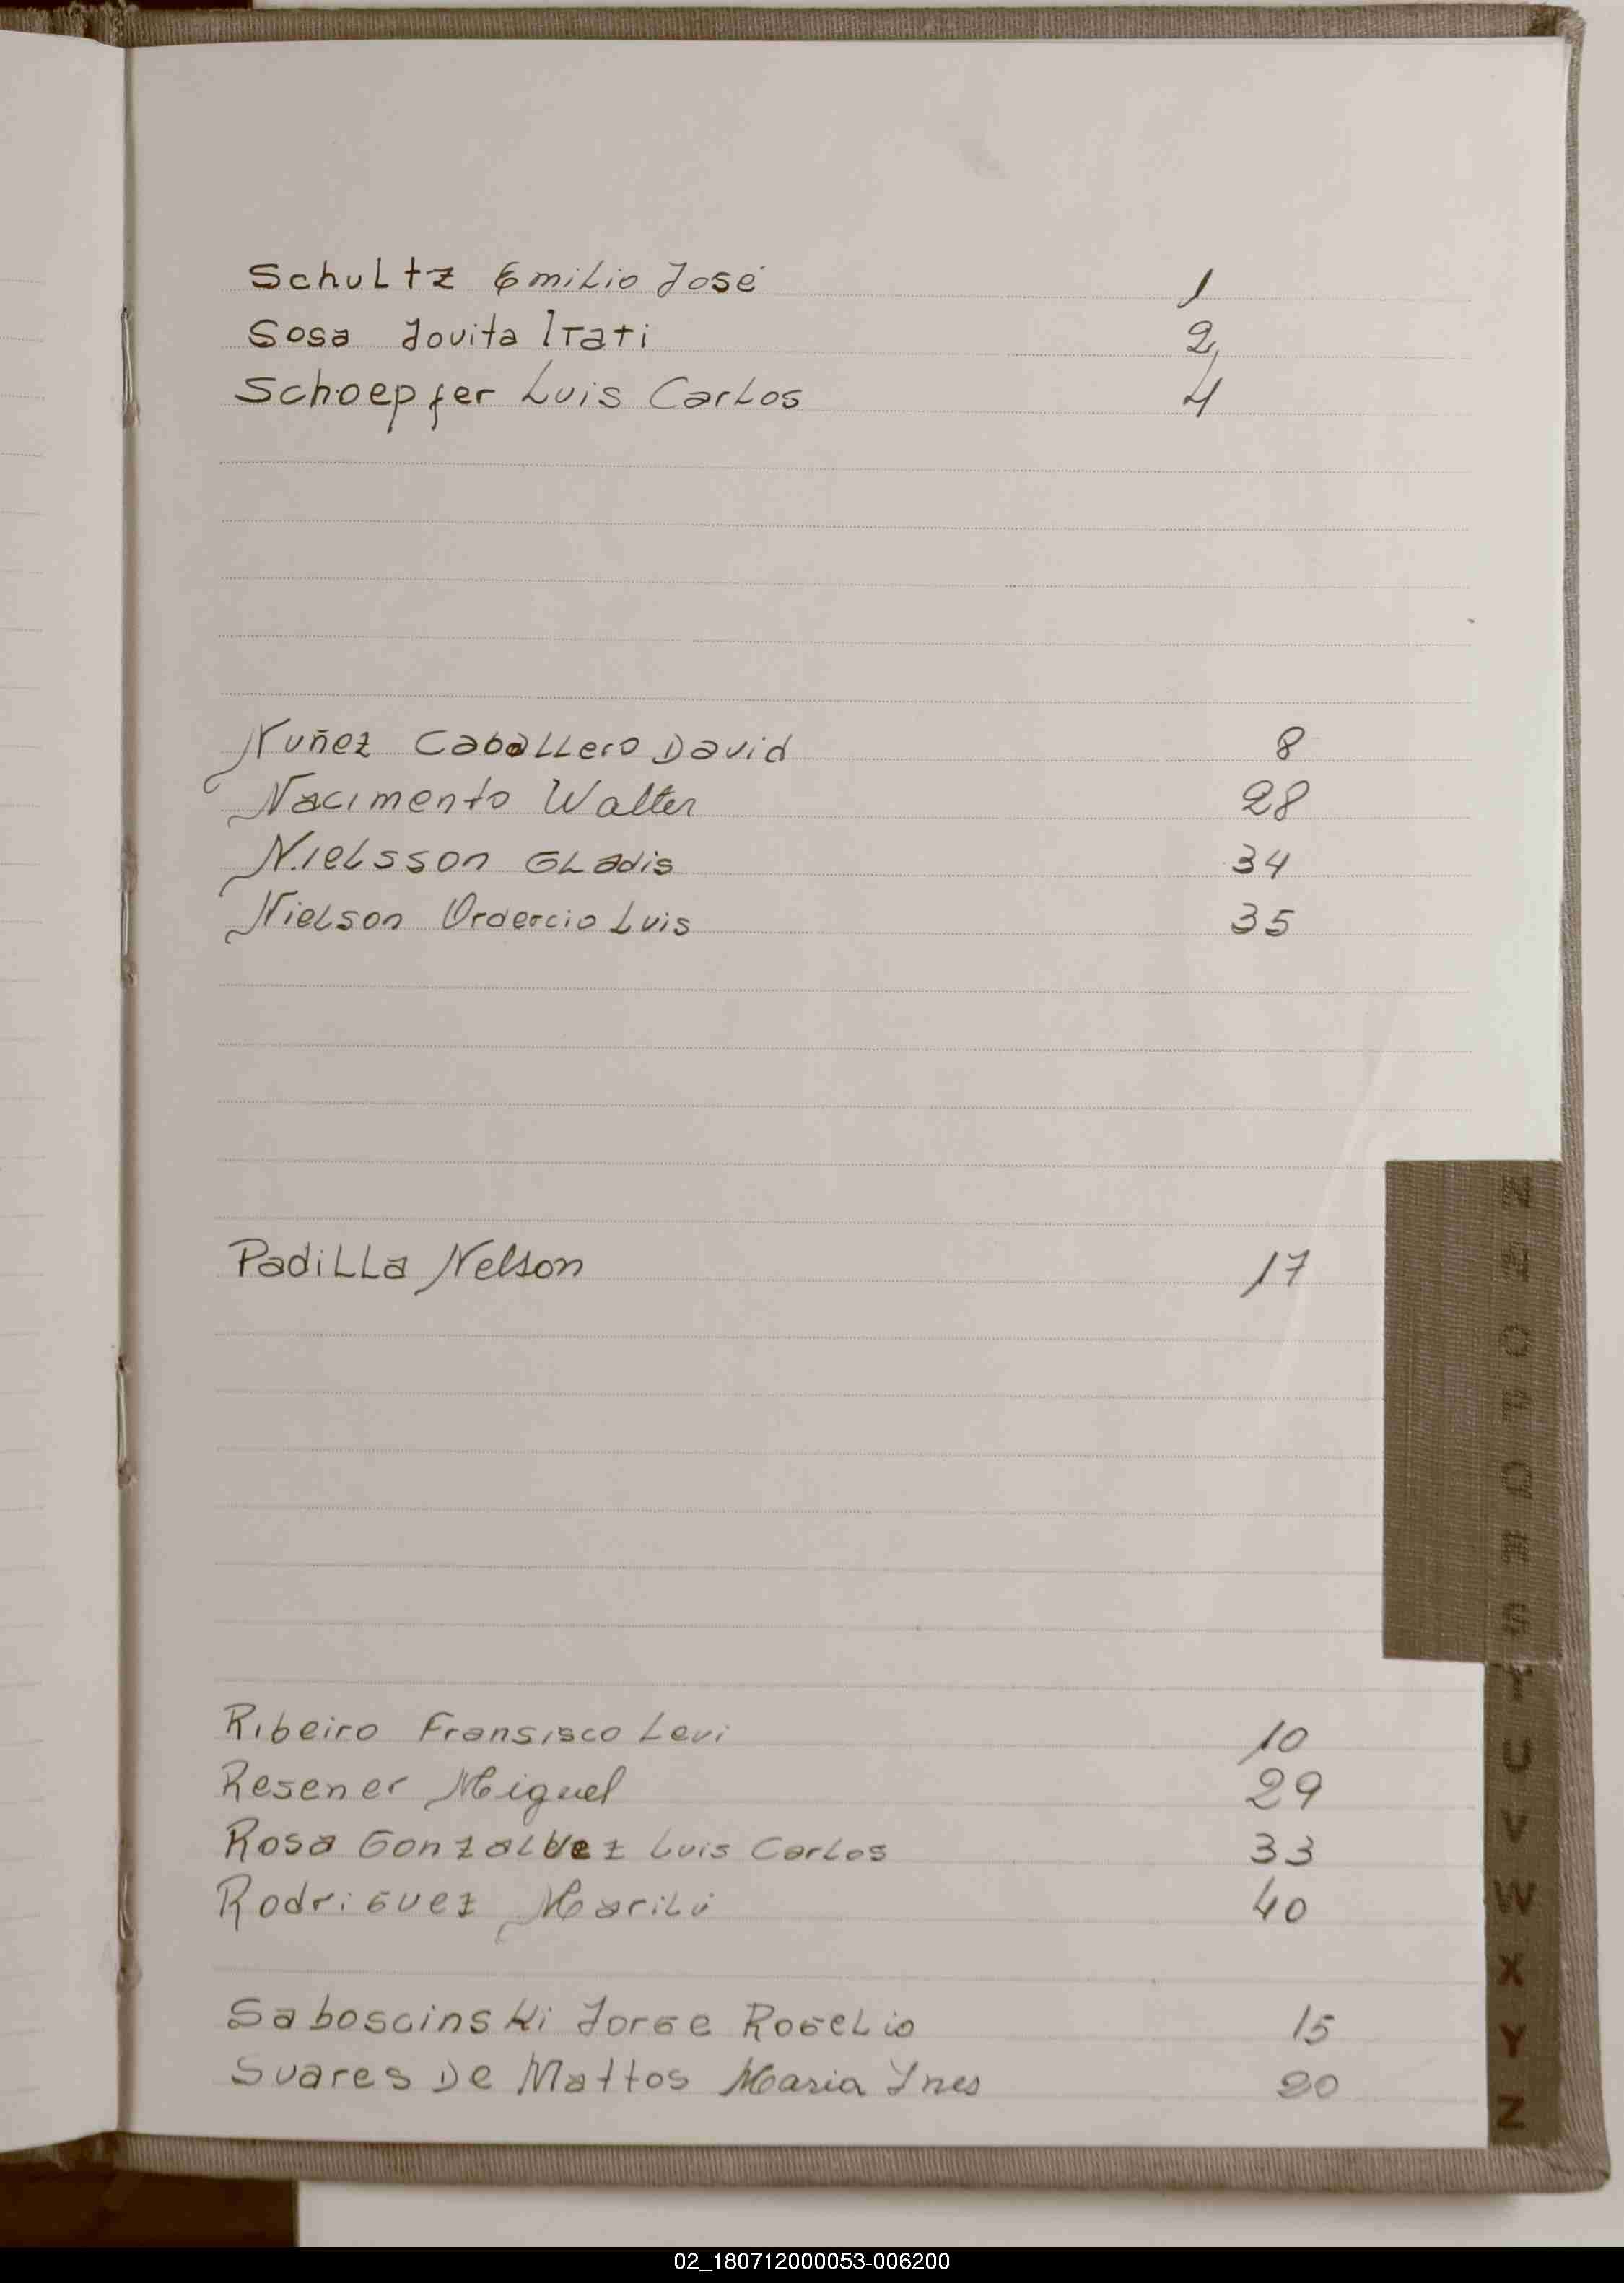 Schultz Emilio José 1
Sosa Jovita Irati 2
Schoepfer Luis Carlos 4
Nuñez Caballero David 8
Nacimento Walter 28
Nielsson Gladis 34
Nielson Ordercio Luis 35
Padilla Nelson 17
Ribeiro Fransisco Levi 10
Resener Miguel 29
Rosa Gonzalvez Luis Carlos 33
Rodriguez Marilú 40
Saboscinski Jorge Rogelio 15
Suares De Mattos Maria Ines 20
N
Ñ
O
P
Q
R
S
T
U
V
W
X
Y
Z
02_180712000053-006200